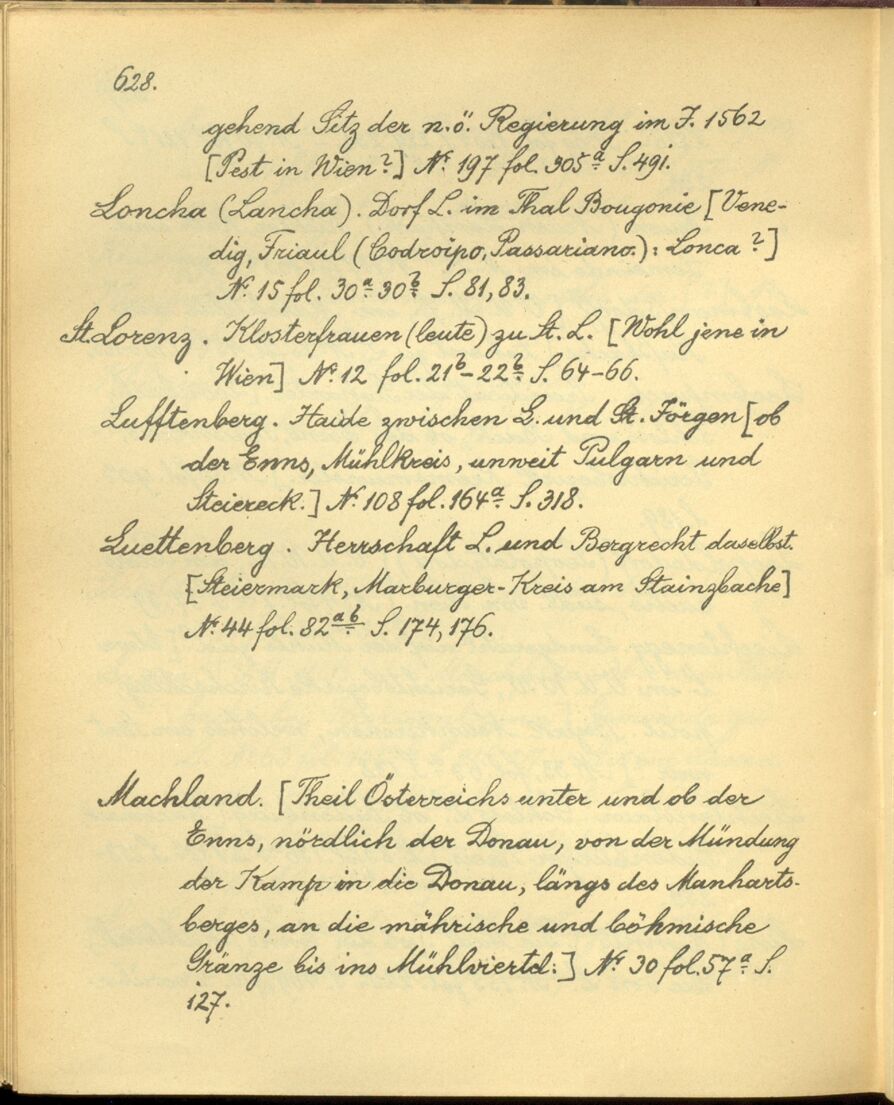 628.
gehend Sitz der n.ö. Regierung im J. 1562
[Pest in Wien?] Nr. 197 fol. 305a. S. 491.
Loncha (Lancha). Dorf L. im Thal Bougonie [Vene-
dig, Friaul (Codroipo, Passariano.): Lonca?]
Nr. 15 fol. 30a. 30b. S. 81, 83.
St. Lorenz. Klosterfrauen (leute) zu St. L. [Wohl jene in
Wien] Nr. 12 fol. 21b – 22b. S. 64–66.
Lufftenberg. Haide zwischen L. und St. Jörgen [ob
der Enns, Mühlkreis, unweit Pulgarn und
Steiereck.] Nr. 108 fol. 164a. S. 318.
Luettenberg. Herrschaft L. und Bergrecht daselbst.
[Steiermark, Marburger-Kreis am Stainzbache]
Nr. 44 fol. 82ab. S. 174, 176.
Machland. [Theil Österreichs unter und ob der
Enns, nördlich der Donau, von der Mündung
der Kamp in die Donau, längs des Manharts-
berges, an die mährische und böhmische
Gränze bis ins Mühlviertel:] Nr. 30 fol. 57a. S.
127.